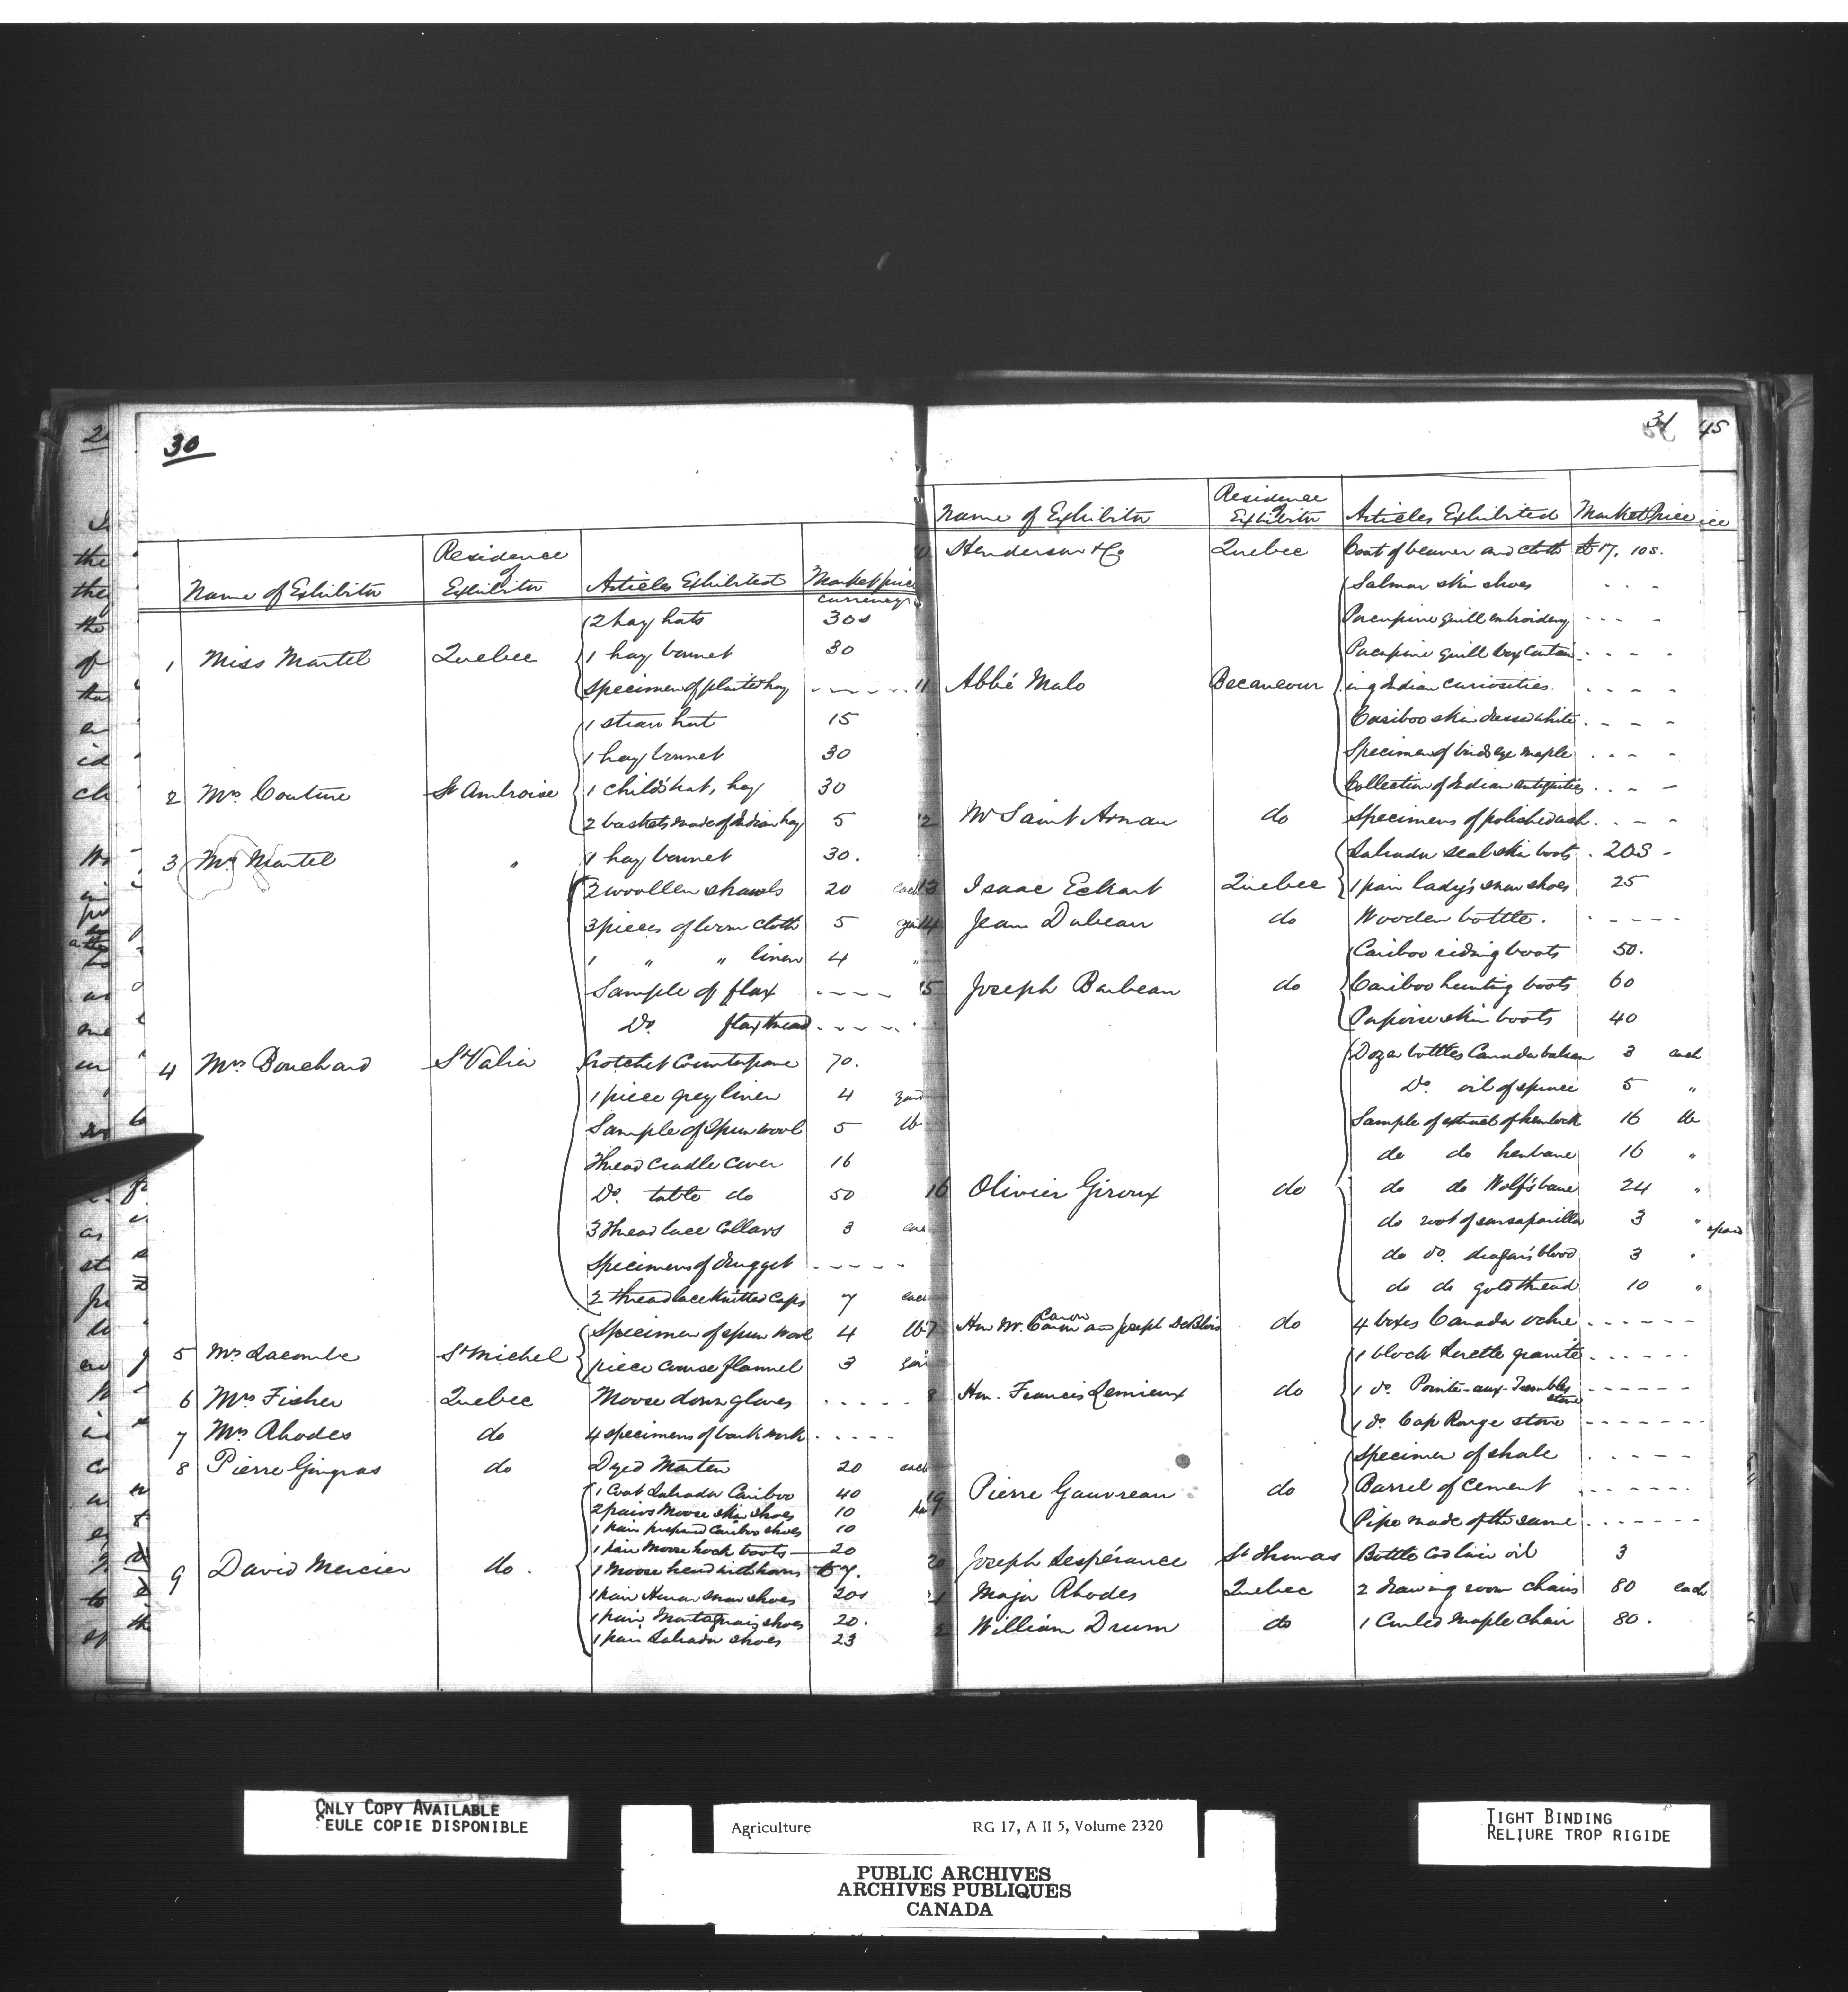 30
Residence
of
Name of Exhibitor Exhibitor Articles Exhibited Market price
currency
2 hay hats 30s
1 Miss Martel Quebec 1 hay bonnet 30
Specimen of plaited hay - - - -
1 straw hat 15
1 hay bonnet 30
2 Mrs Couture St Ambroise 1 child's hat, hay 30
2 baskets made of Indian hay 5
3 Mrs Martel " 1 hay bonnet 30.
2 woollen shawls 20 each
3 pieces of worn cloth 5
1 " " linen 4 "
Sample of flax - - - -
Do. flax thread - - - -
4 Mrs Bouchard St Valier Crotchet Counterpane 70.
1 piece grey linen 4 yard
Sample of Spun wool 5 lb
Thread cradle cover 16
Do. table do 50
3 Thread lace Collars 3
Specimens of drugget - - - -
2 thread lace Knitted Caps 7 each
Specimen of spun wool 4 lb
5 Mrs Lacombe St Michel piece coarse flannel 3
6 Mrs Fisher Quebec Moose down gloves - - - -
7 Mrs Rhodes do 4 specimens of bark work - - - -
8 Pierre Gingras do Dyed Marten 20 each
1 Coat Labrador Cariboo 40
2 pairs Moose skin shoes 10
1 pair prepared Cariboo shoes 10
1 pair Moose hock boots 20
9 David Mercier do. 1 Moose head with horns £7.
1 pair Huron snow shoes 20s
1 pair Montagnais shoes 20.
1 pair Labrador shoes 23
31
45
Residence
of
Name of Exhibitor Exhibitor Articles Exhibited Market Price
Henderson & Co Quebec Coat of beaver and cloth £17. 10s.
Salmon skin shoes - - -
Porcupine quill embroidery - - - -
Porcupine quill box contain- - - -
11 Abbé Malo Becancour ing Indian curiosities. - - - -
Cariboo skin dressed white - - - -
Specimen of birds eye maple - - - -
Collection of Indian antiquities - - - -
12 Mr Saint Arnau do Specimens of polished ash - - - -
Labrador seal skin boots . 20s -
13 Isaac Eckart Quebec 1 pair lady's snow shoes 25
14 Jean Dubeau do Wooden bottle. - - - - -
Cariboo riding boots 50.
15 Joseph Barbeau do Cariboo hunting boots 60
Porpoise skin boots 40
Dozen bottles Canada balsam 3 each
Do. oil of spruce 5 "
Sample of extract of hemlock 16 lb
do do henbane 16 "
16 Olivier Giroux do do do Wolfsbane 24 "
do root of sarsaparilla 3 "
do do. dragon's blood 3 "
do do gold thread 10 "
Caron
17 Hon Mr. Caron and Joseph DeBlois do 4 boxes Canada ochre - - - - - -
1 block Lorette granite - - - - - -
8 Hon. Francis Lemieux do 1 do. Pointe-aux-Trembles - - - - - -
stone
1 do. Cap Rouge stone - - - - - - -
Specimen of shale - - - - -
19 Pierre Gauvreau do Barrel of Cement - - - - - -
Pipe made of the same - - - - - - -
20 Joseph Lespérance St Thomas Bottle Cod liver oil 3
Major Rhodes Quebec 2 drawing room chairs 80 each
2 William Drum do 1 Curled Maple Chair 80.
ONLY COPY AVAILABLE
SEULE COPIE DISPONIBLE
Agriculture RG 17, A II 5, Volume 2320
PUBLIC ARCHIVES
ARCHIVES PUBLIQUES
CANADA
TIGHT BINDING
RELIURE TROP RIGIDE